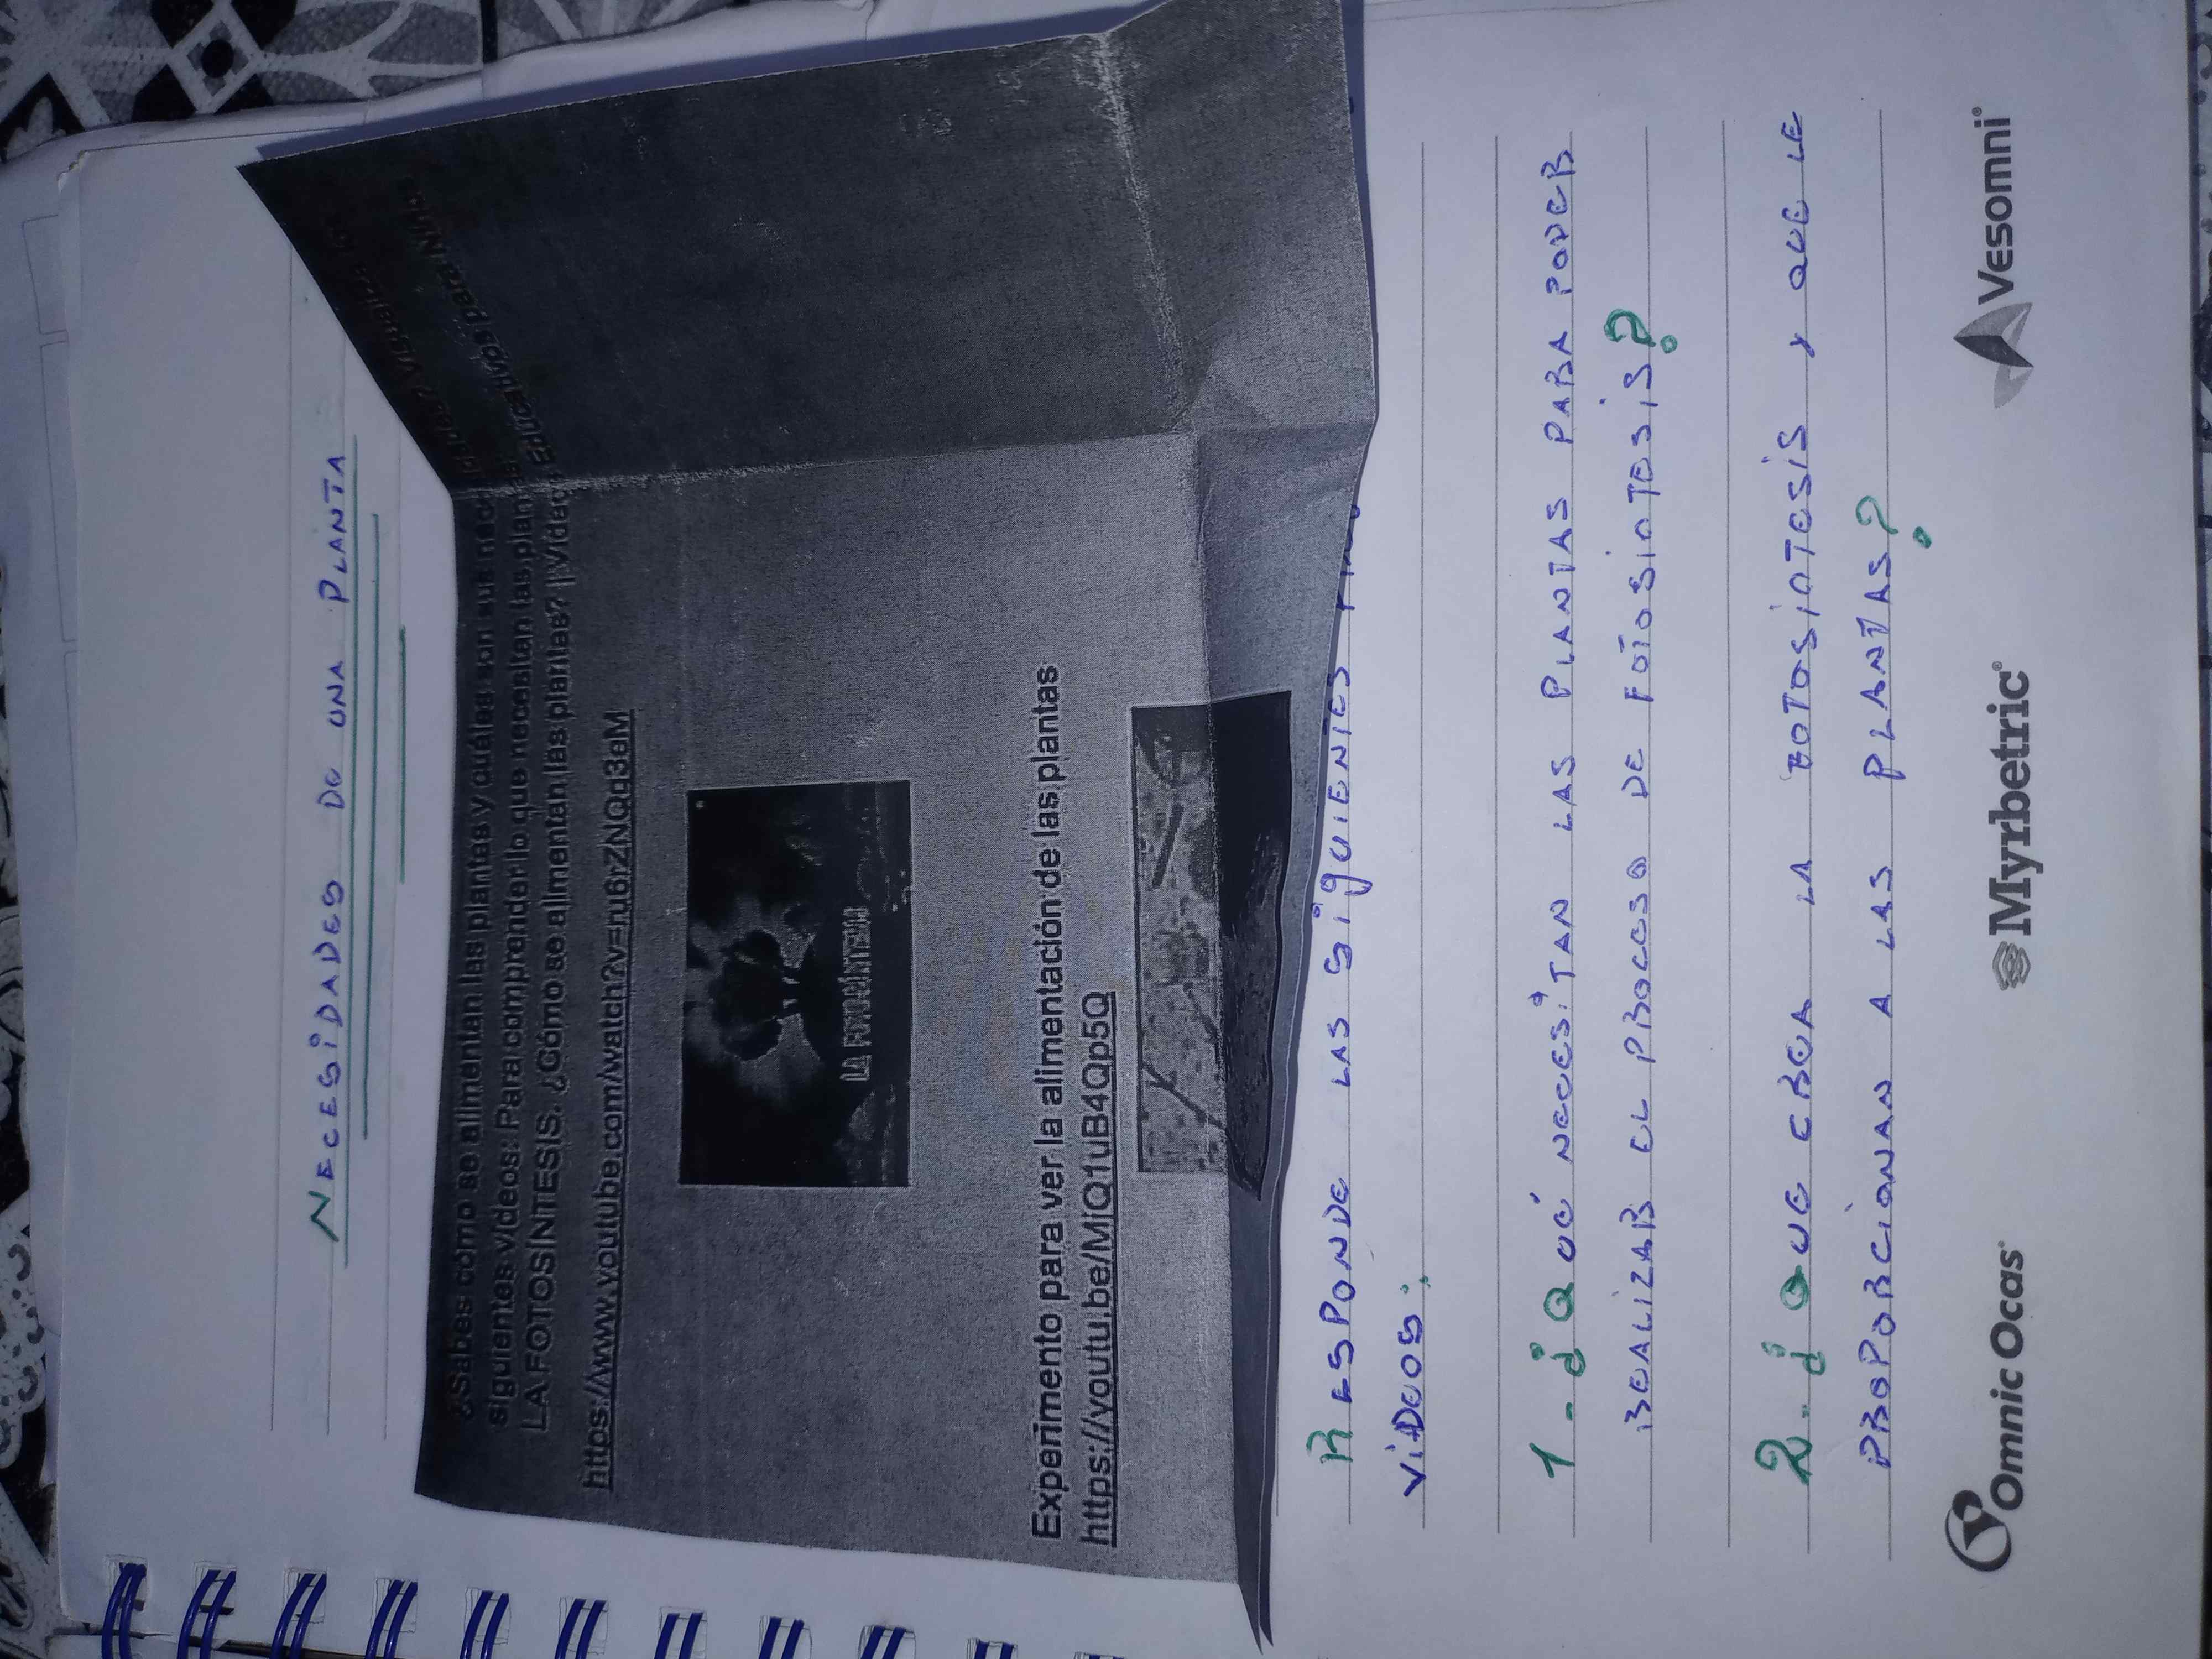 NECESIDADES DE UNA PLANTA
¿Sabes cómo se alimentan las plantas y cuáles son sus
siguientes videos: Para comprender lo que necesitan las plantas
LA FOTOSÍNTESIS. ¿Cómo se alimentan las plantas? | Videos Educativos para Niños
https://www.youtube.com/watch?v=ru6rZNQq3eM
LA FOTOSÍNTESIS
Experimento para ver la alimentación de las plantas
https://youtu.be/MjQ1uB4Qp5Q
RESPONDE LAS SIGUIENTES
VIDEOS:
1-¿QUÉ NECESITAN LAS PLANTAS PARA PODER
REALIZAR EL PROCESO DE FOTOSINTESIS?
2-¿QUE CREA LA FOTOSINTESIS Y QUE LE
PROPORCIONAN A LAS PLANTAS?
Omnic Ocas® Myrbetric® Vesomni®